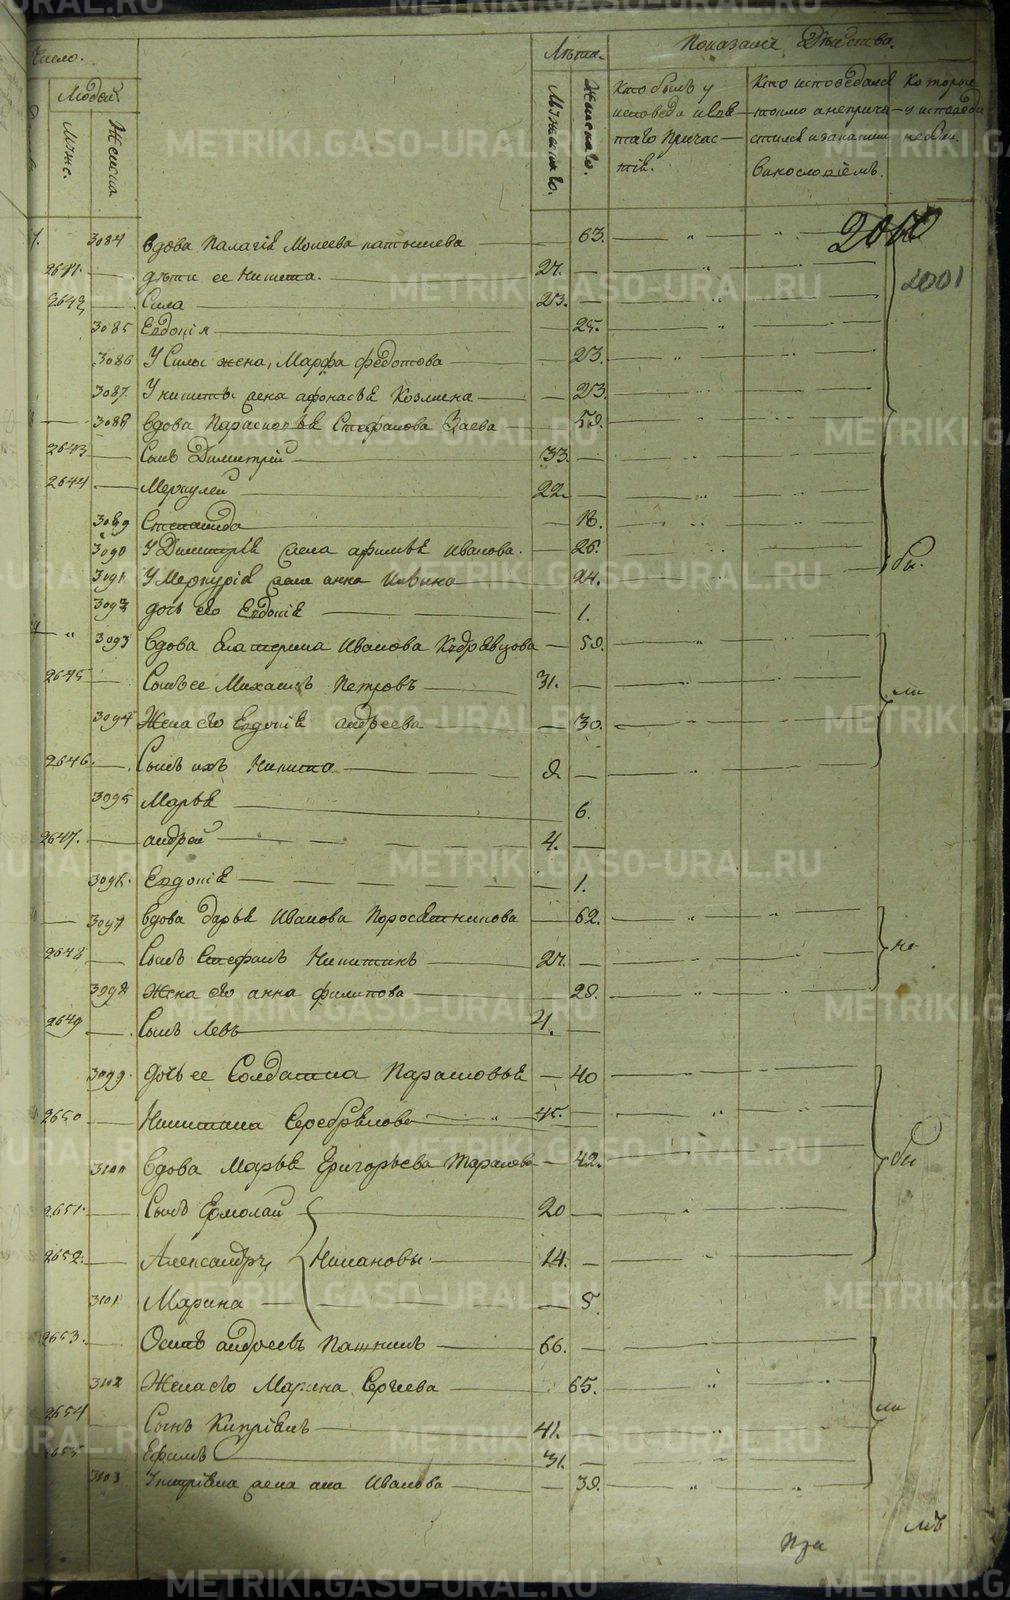 Число.
Людей
Мужс.
Женска
Лѣта.
Мужеска го.
Женскаго.
Показаніе Дѣйства.
Кто былъ у исповеди и свя
таго Причас
тія.
Кто исповедался
токмо а неприча
стился и запаким
винословіемъ.
Которые
у исповеди
небыли.
3084 вдова Палагія Моисеева 63.
2000
2001
2641. дѣти ее Никита. 27.
2642 Сила 23.
3085 Евдокія 25.
3086 У Силы жена, Марфа Федотова 23.
3087. У никиты жена афонасья Козмина 23.
3088 вдова Парасковья Стефанова Заева 58.
2643 Сынъ Димитрій 33.
2644 Меркулей 22.
3089 Степанида 18.
3090 У Димитрія жена афимья Иванова. 26.
3091 У Меркурія жена анна 24.
3092 дочь его Евдокія 1.
бы.
3093 вдова Екатерина Иванова Кудрявцова 58.
2645 Сынъ ее Михаилъ Петровъ 31.
ли
3094 Жена его Евдокія андреева 30.
2646. Сынъ ихъ Никита 8.
3095 Марья 6.
2647. андрей 4.
3096. Евдокія 1.
3097 вдова дарья Иванова Поросятникова 62.
2648 Сынъ Стефанъ Никитинъ 27. не
3098 Жена его анна филипова 28.
2649 Сынъ Левъ 4.
3099. дочь ее Солдатка Парасковья 40
2650 45.
3100 вдова Марья Григорьева 42. бы
2651. Сынъ Ермолай 20
2652. Александръ 14.
3101 Марина 5.
2653. Осипъ андреевъ 66.
3102 Жена его Марина Сергеева 65.
ли
2654 Сынъ Кипріянъ 41.
2655 Ефимъ 31.
3103 У кипріяна жена ана Иванова 38.
лъ